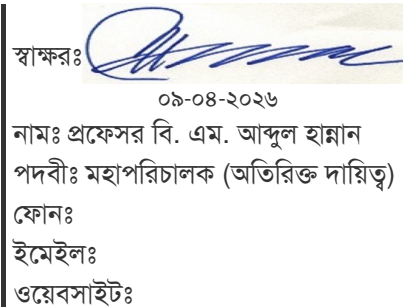 স্বাক্ষরঃ
০৯-০৪-২০২৬
নামঃ প্রফেসর বি. এম. আব্দুল হান্নান
পদবীঃ মহাপরিচালক (অতিরিক্ত দায়িত্ব)
ফোনঃ
ইমেইলঃ
ওয়েবসাইটঃ